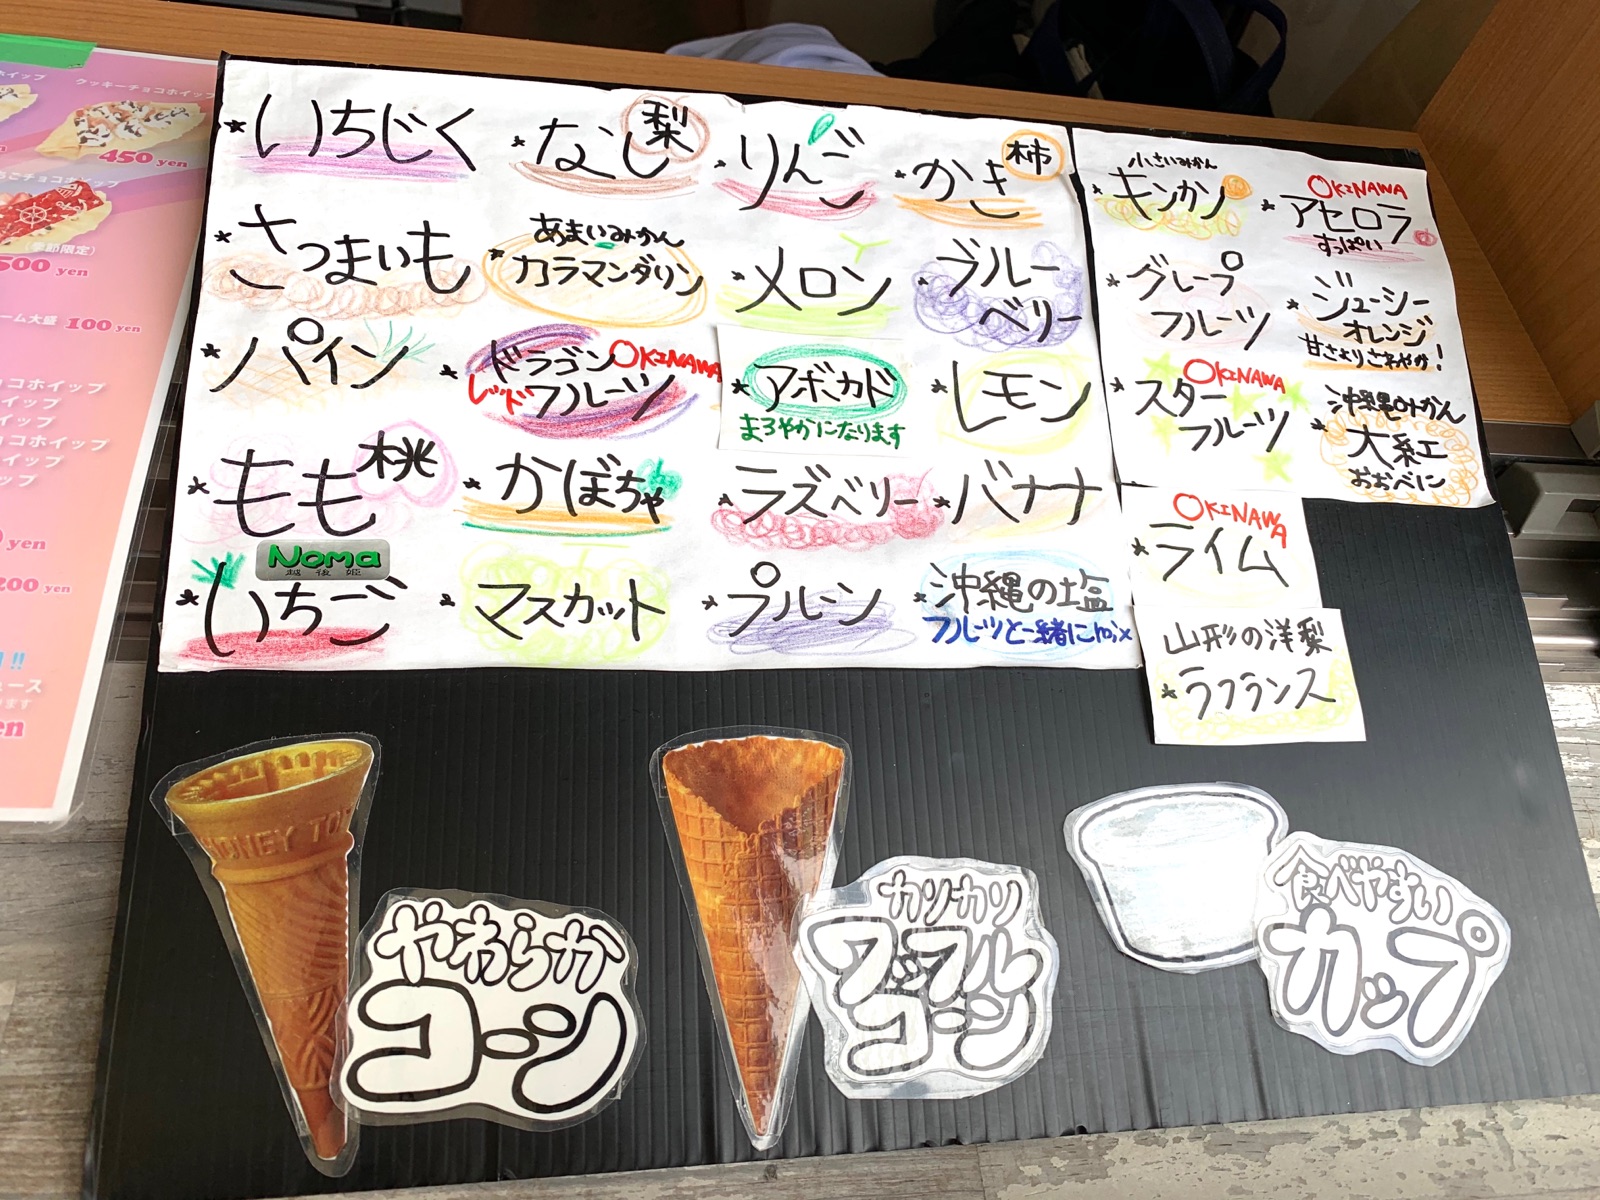 クッキーチョコホイップ
450 yen
(季節限定)
500 yen
100 yen
ホイップ
yen
200 yen
*いちじく
*なし 梨
*りんご
*かき 柿
*さつまいも
あまいみかん
*カラマンダリン
*メロン
*ブルー
ベリー
*パイン
*ドラゴン OKINAWA
レッド フルーツ
*アボカド
まろやかになります
*レモン
*もも 桃
*かぼちゃ
*ラズベリー
*バナナ
Noma
越後姫
*いちご
*マスカット
*プルーン
*沖縄の塩
フルーツと一緒にmix
小さいみかん
*キンカン
OKINAWA
*アセロラ
すっぱい
*グレープ
フルーツ
*ジューシー
オレンジ
甘さよりさわやか!
OKINAWA
*スター
フルーツ
沖縄みかん
*大紅
おおべに
OKINAWA
*ライム
山形の洋梨
*ラフランス
HONEY TO
やわらか
コーン
カリカリ
ワッフル
コーン
食べやすい
カップ